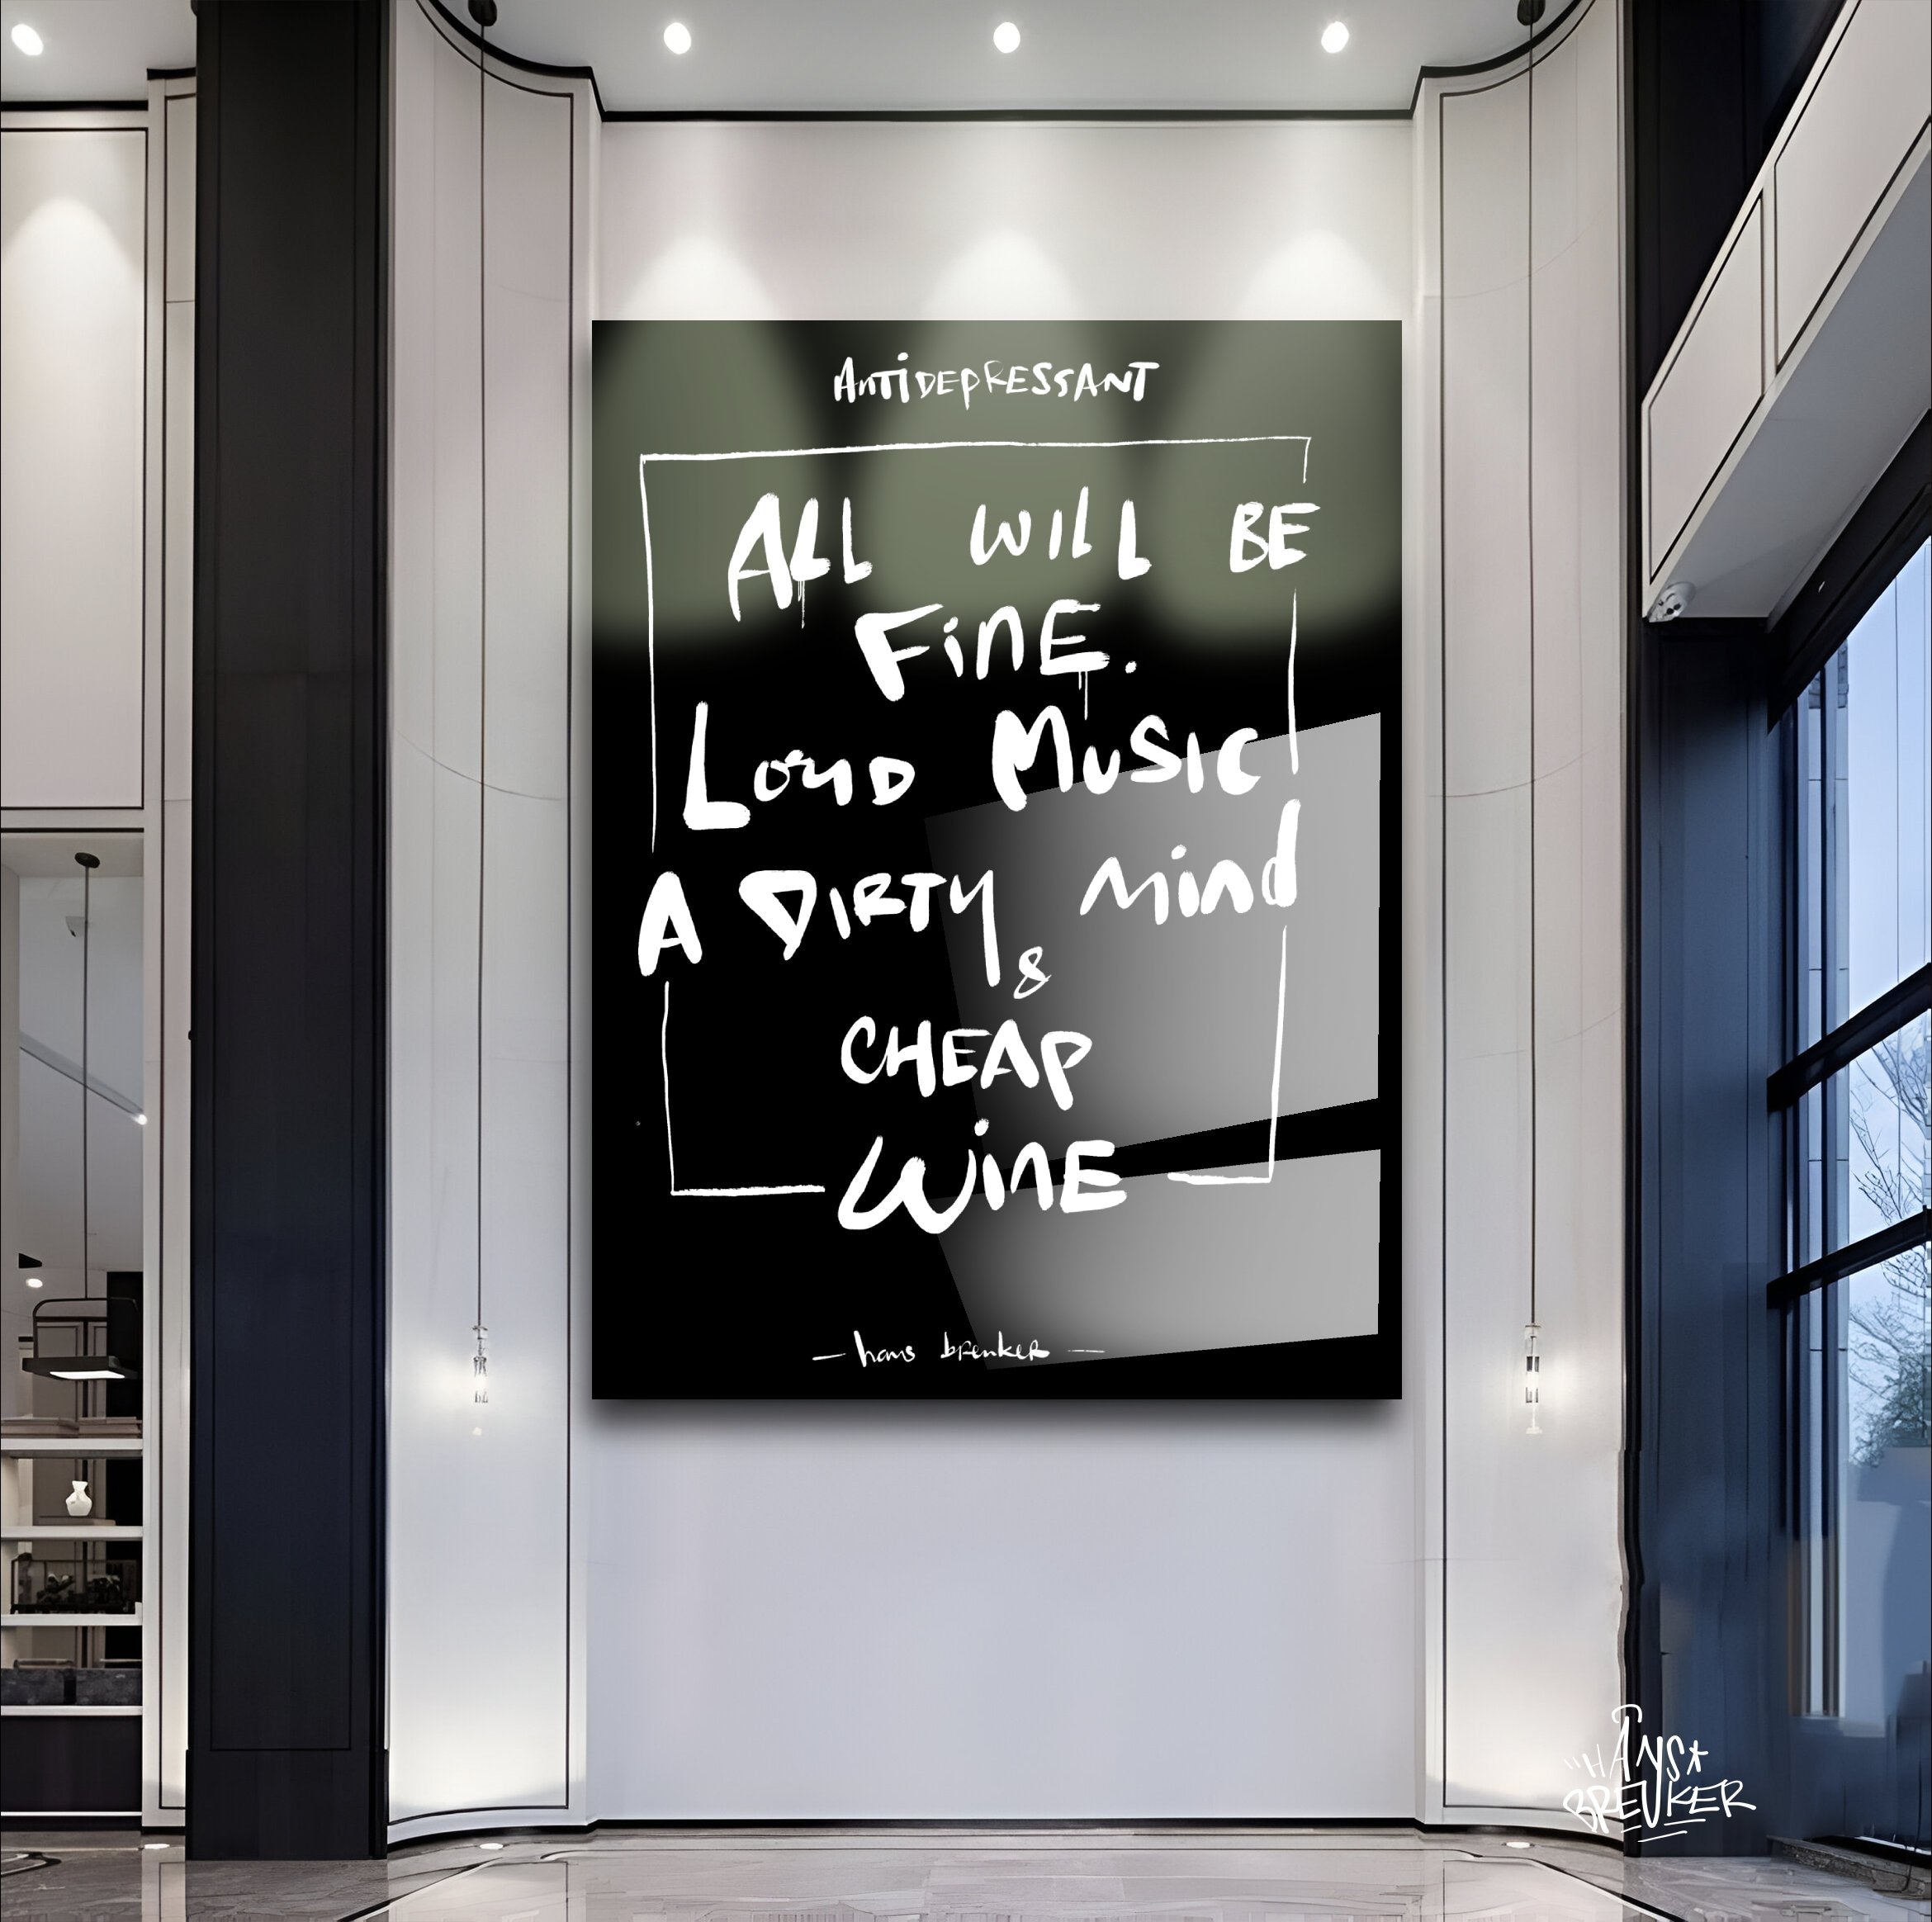 AnTiDEPRESSANT
ALL WILL BE
FinE.
LOUD MUSIC
A DIRTY Mind
&
CHEAP
WinE
— hans breuker —
"HANS*
BREUKER